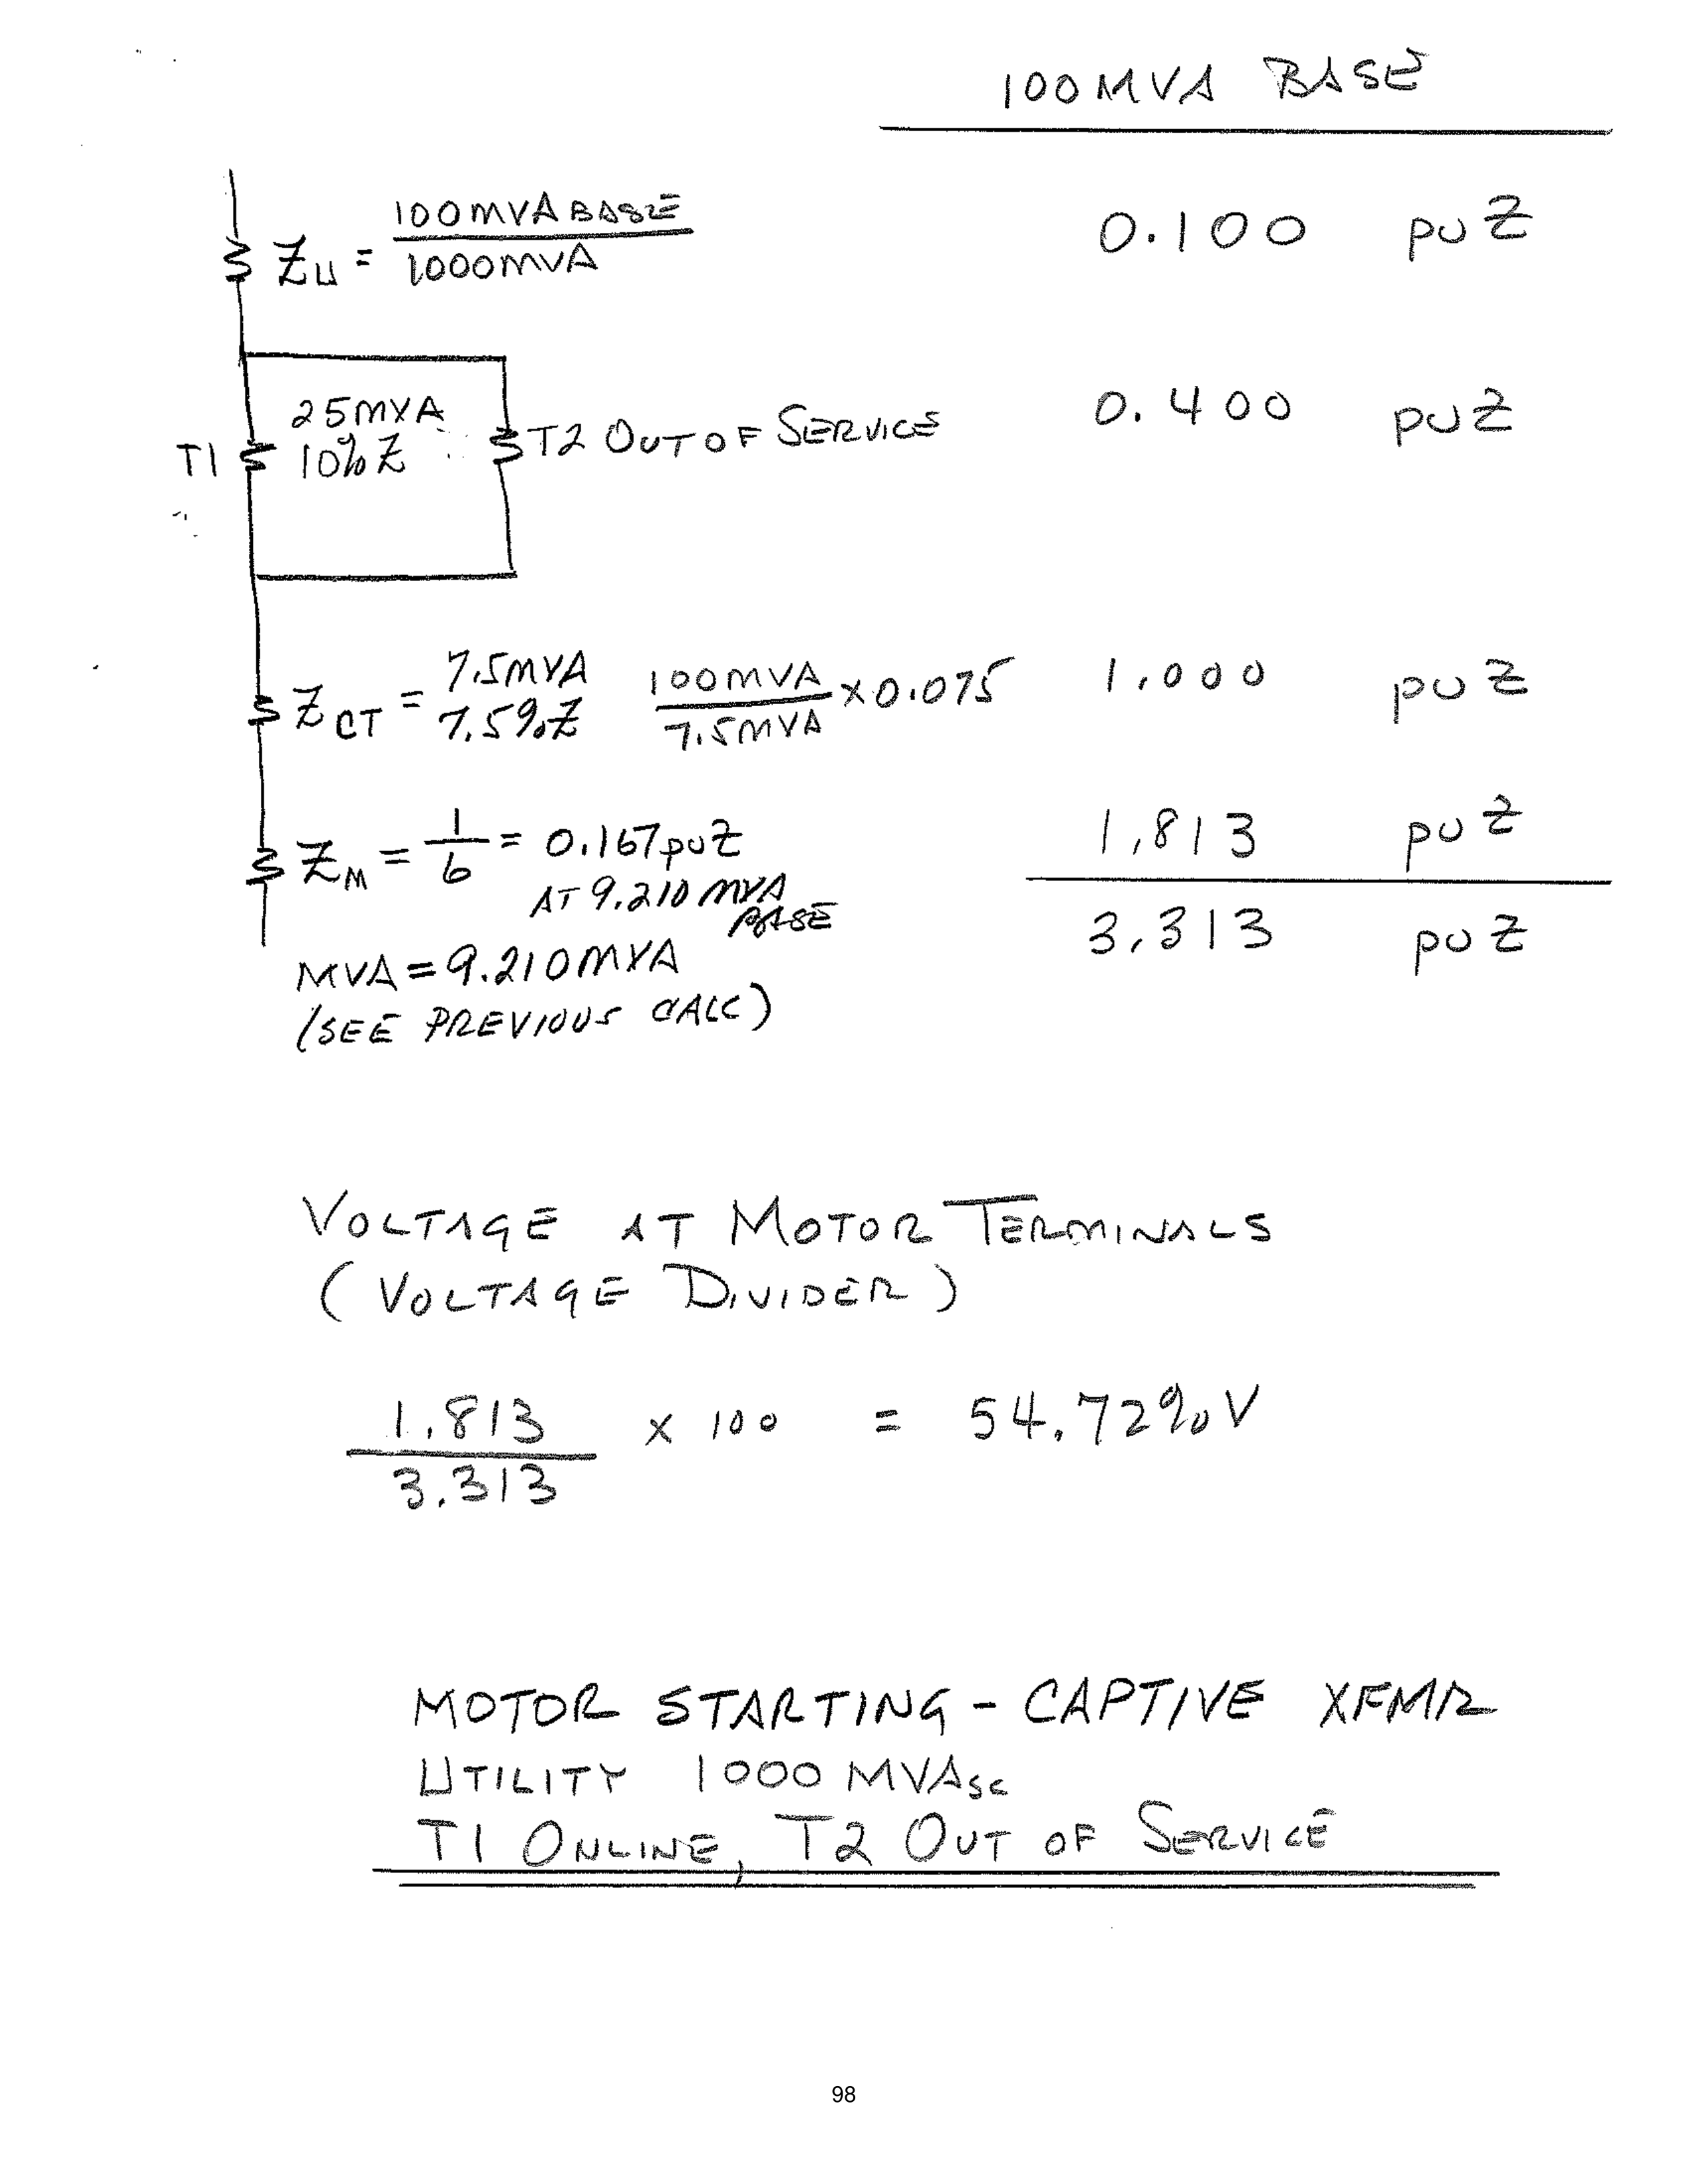 100 MVA BASE
Z_U = 100 MVA BASE / 1000 MVA 0.100 pu Z
T1 25 MVA 10% Z T2 OUT OF SERVICE 0.400 pu Z
Z_CT = 7.5 MVA 7.5% Z 100 MVA / 7.5 MVA × 0.075 1.000 pu Z
Z_M = 1/6 = 0.167 pu Z 1.813 pu Z
AT 9.210 MVA BASE
3.313 pu Z
MVA = 9.210 MVA
(SEE PREVIOUS CALC)
VOLTAGE AT MOTOR TERMINALS
(VOLTAGE DIVIDER)
1.813 / 3.313 × 100 = 54.72% V
MOTOR STARTING - CAPTIVE XFMR
UTILITY 1000 MVAsc
T1 ONLINE, T2 OUT OF SERVICE
98